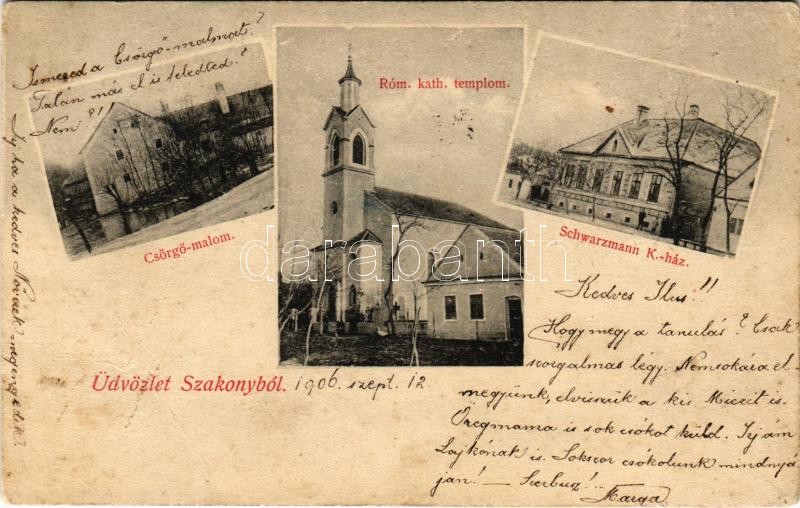 Ismered a Csörgő-malmot?
Talán már el is feledted?
Nem?!!
Írj ha a kedves Nővérek megengedik?
Csörgő-malom.
Róm. kath. templom.
Schwarzmann K.-ház.
darabanth
Üdvözlet Szakonyból. 1906. szept. 12
Kedves Ilus!!
Hogy megy a tanulás? Csak
szorgalmas légy. Nemsokára el-
megyünk, elvisszük a kis Miczit is.
Öregmama is sok csókot küld. Írj ám
Lajkónak is. Sokszor csókolunk mindnyá
jan! – Szerbusz!..
Marga